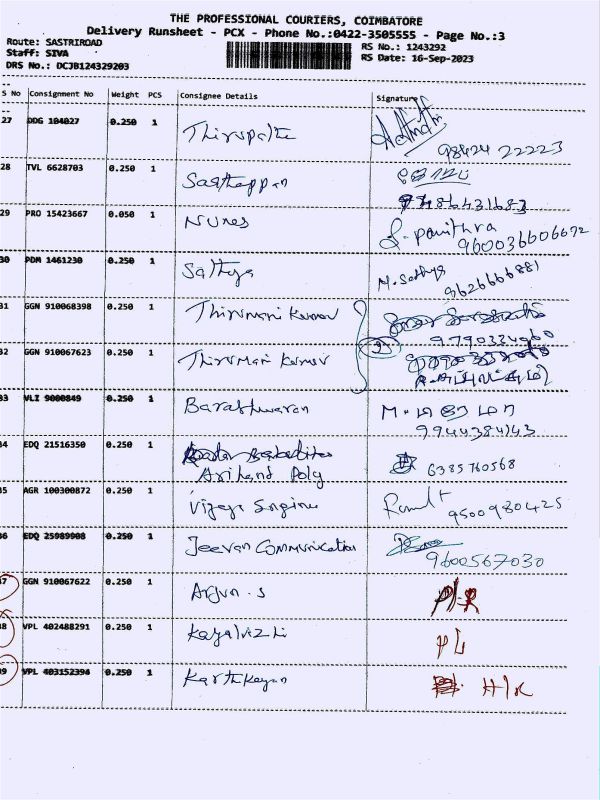 THE PROFESSIONAL COURIERS, COIMBATORE
Delivery Runsheet - PCX - Phone No.:0422-3505555 - Page No.:3
Route: SASTRIROAD
Staff: SIVA
DRS No.: DCJB124329203
RS No.: 1243292
RS Date: 16-Sep-2023
S No Consignment No Weight PCS Consignee Details Signature
27 DDG 104027 0.250 1 Thirupathi
98424 22223
28 TVL 6628703 0.250 1 Sasthappan
29 PRO 15423667 0.050 1 Nunes S. pavithra
960036606672
30 PDM 1461230 0.250 1 Sathya M. Sathya
9626666881
31 GGN 910068398 0.250 1 Thirumani Kumar
9790324960
32 GGN 910067623 0.250 1 Thirumani Kumar
33 VLI 9000849 0.250 1 Barathwaran
9944384143
34 EDQ 21516350 0.250 1
Arihant Poly 6385760568
35 AGR 100300872 0.250 1 Vijaya Engine
9500980425
36 EDQ 25989908 0.250 1 Jeevan Communication
9600567030
37 GGN 910067622 0.250 1 Arjun.S
38 VPL 402488291 0.250 1 Kayalvizhi PL
39 VPL 403152394 0.250 1 Karthkeyan H/R